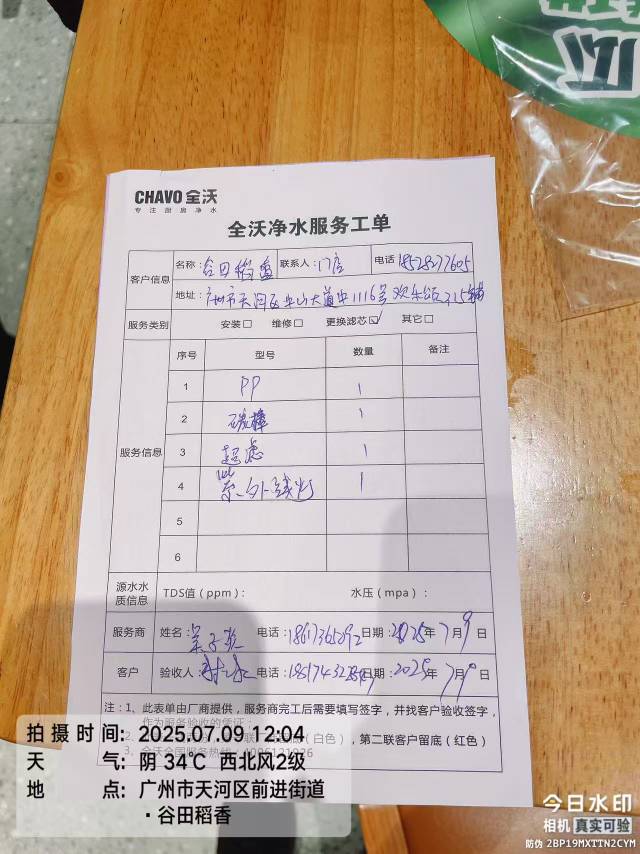 CHAVO 全沃
专注厨房净水
全沃净水服务工单
客户信息 名称：谷田稻香 联系人：门店 电话 18528277605
地址：广州市天河区中山大道中1116号欢乐颂315铺
服务类别 安装□ 维修□ 更换滤芯☑ 其它□
服务信息 序号 型号 数量 备注
1 PP 1
2 碳棒 1
3 超滤 1
4 紫外线灯 1
5
6
源水水质信息 TDS值（ppm）： 水压（mpa）：
服务商 姓名： 电话：18617365292 日期：2025年7月9日
客户 验收人： 电话： 日期：2025年7月9日
注：1、此表单由厂商提供，服务商完工后需要填写签字，并找客户验收签字，
作为服务验收的凭证；
（白色），第二联客户留底（红色）
3、全沃全国服务热线：4006121026
拍摄时间：2025.07.09 12:04
天气：阴 34℃ 西北风2级
地点：广州市天河区前进街道
·谷田稻香
今日水印
相机 真实可验
防伪 2BP19MXTTN2CYM